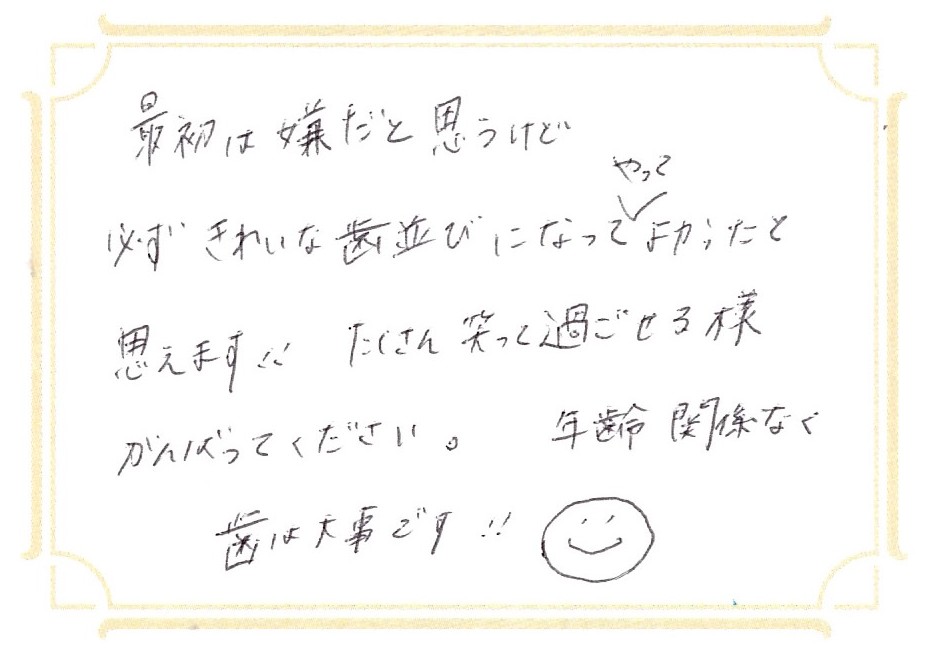 最初は嫌だと思うけど
必ずきれいな歯並びになってやってよかったと
思えます!! たくさん笑って過ごせる様
がんばってください。 年齢関係なく
歯は大事です!!